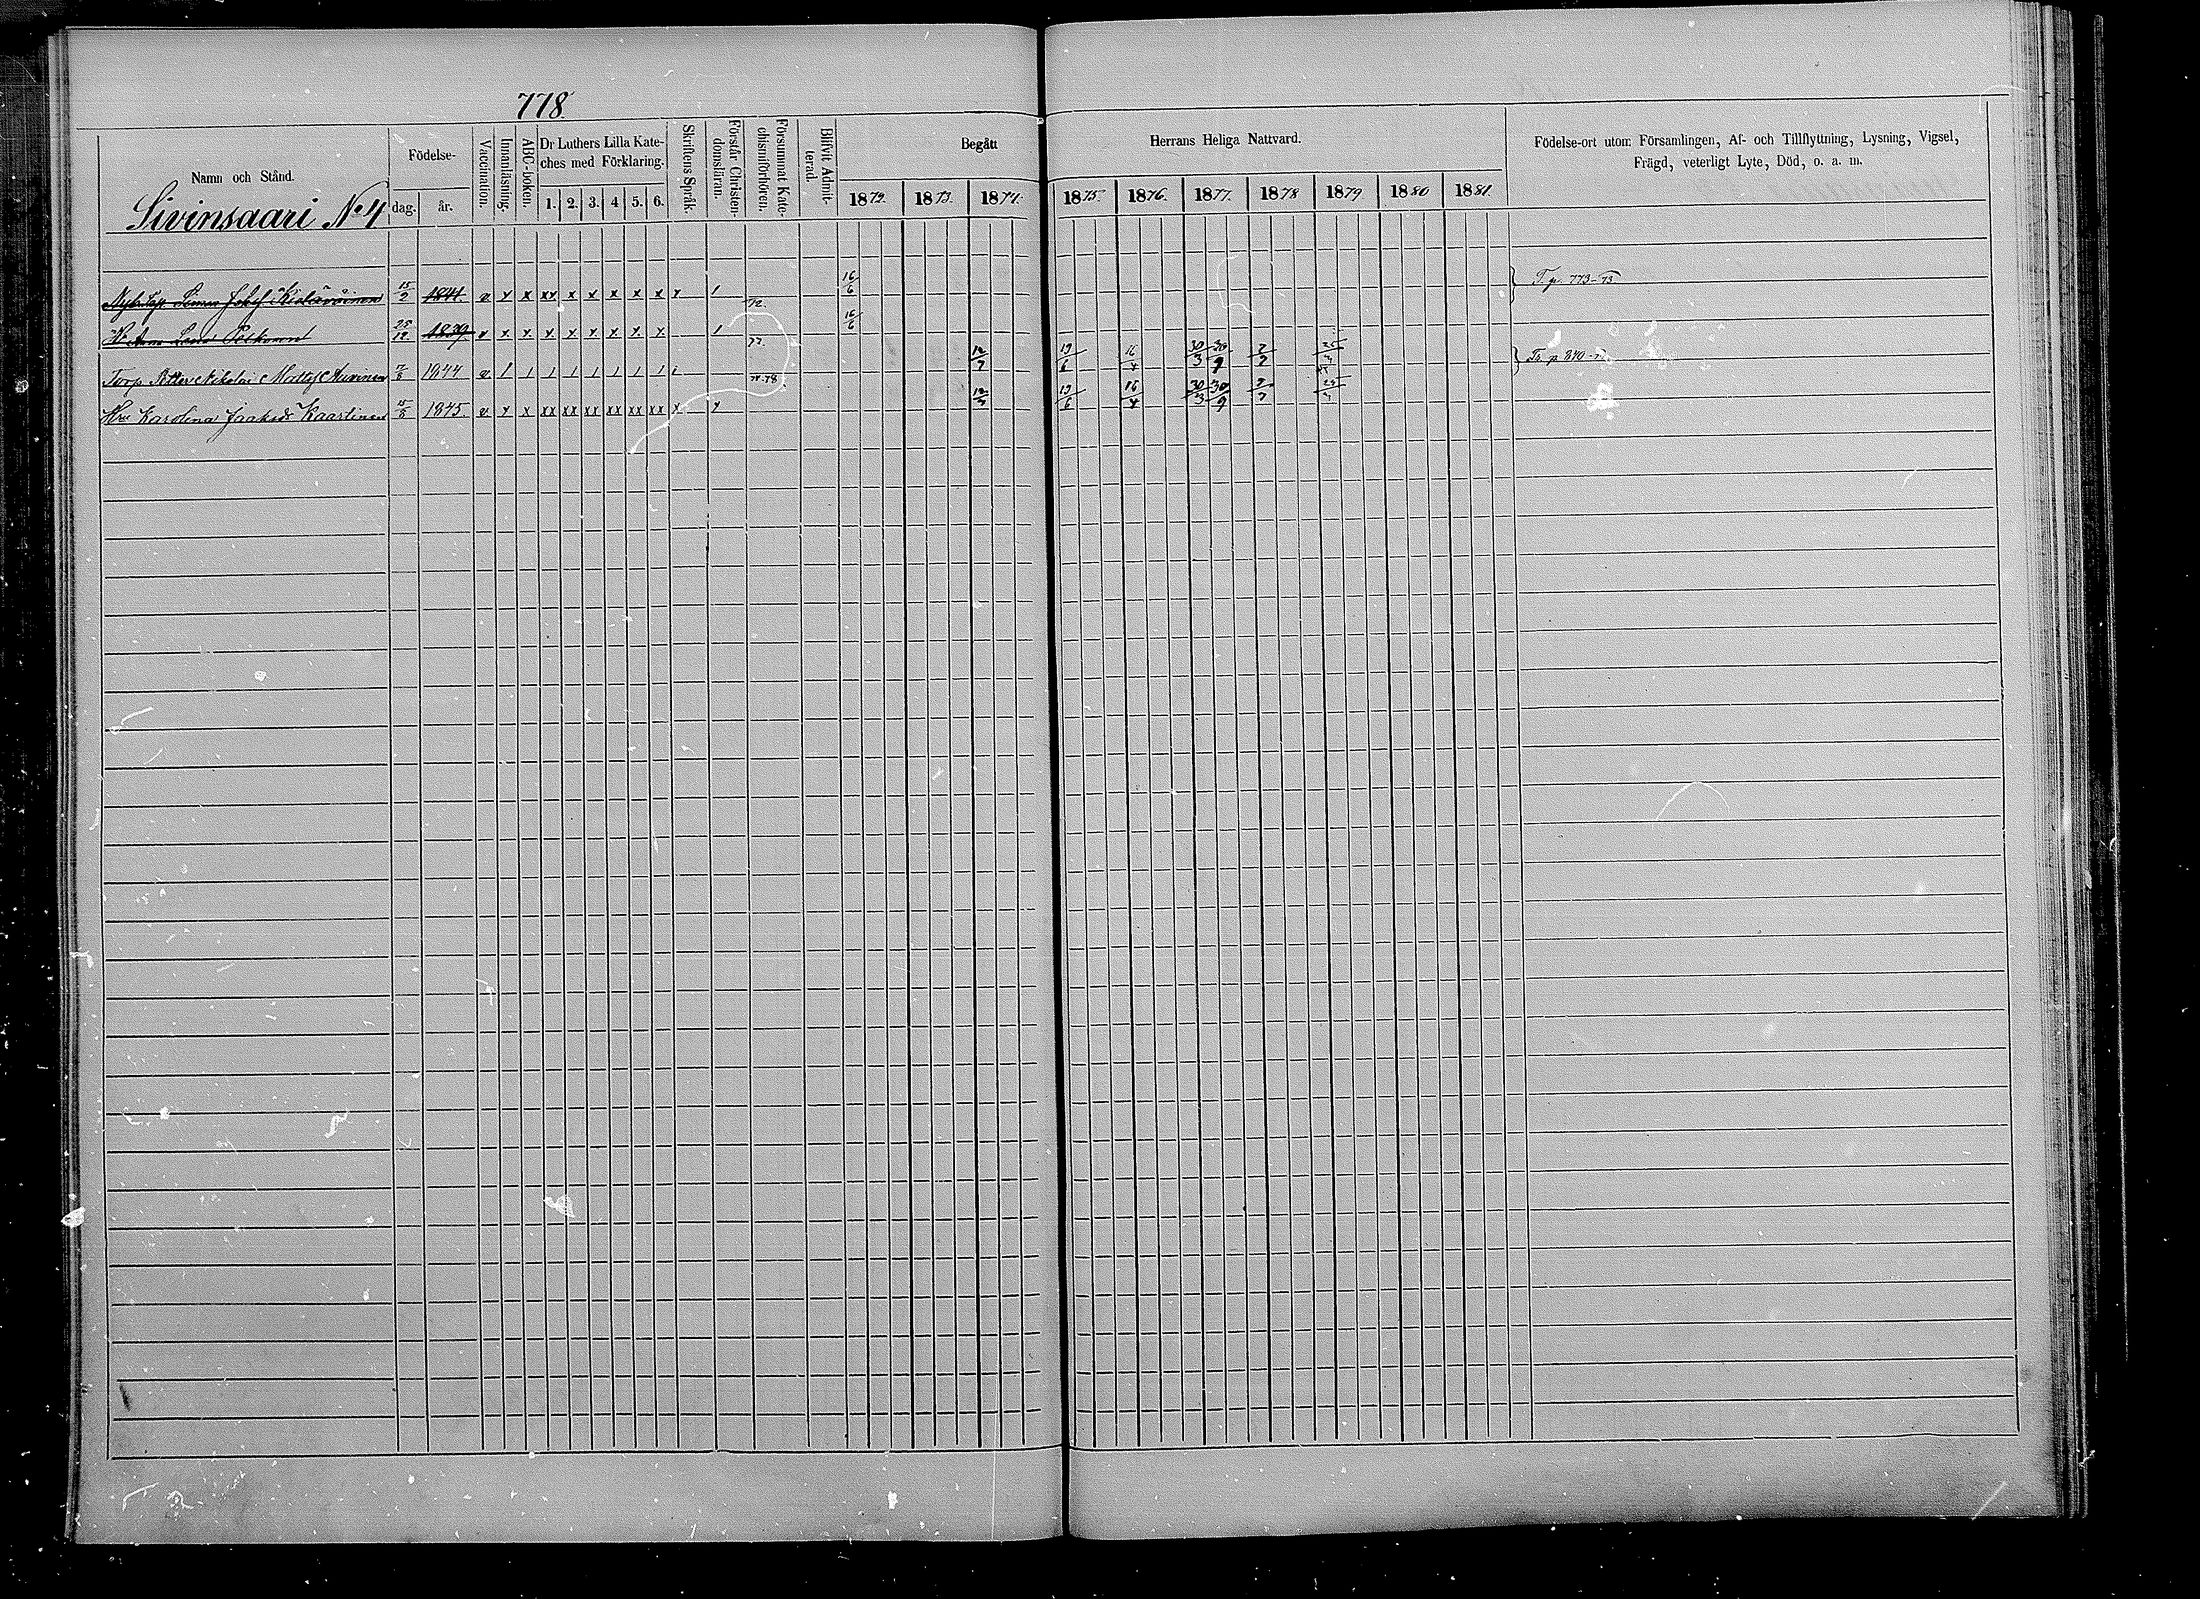 778.
Namn och Stånd.
Födelse-
dag. år.
Vaccination.
Innanläsning.
ABC-boken.
Dr Luthers Lilla Kate-
ches med Förklaring.
1. 2. 3. 4 5. 6.
Skriftens Språk.
Förstår Christen-
domsläran.
Försummat Kate-
chismiförhören.
Blifvit Admit-
terad.
Begått Herrans Heliga Nattvard.
1872. 1873. 1874. 1875. 1876. 1877. 1878 1879 1880 1881.
Födelse-ort utom Församlingen, Af- och Tillflyttning, Lysning, Vigsel,
Frägd, veterligt Lyte, Död, o. a. m.
Sivinsaari No 4
15/2 1841 v x x xx x x x x x x 1 16/6 T. p. 773-73
Anna 25/12 1839 v x x x x x x x x 1 72. 16/6
Torp. Petter Nikolai 1844 v 1 1 1 1 1 1 1 1 12/7 19/6 16/4 30/3 30/9 2/2
Hru Karolina Kaartinen 1845. v x x xx xx xx xx xx xx x x 19/6 16/4 30/3 30/9